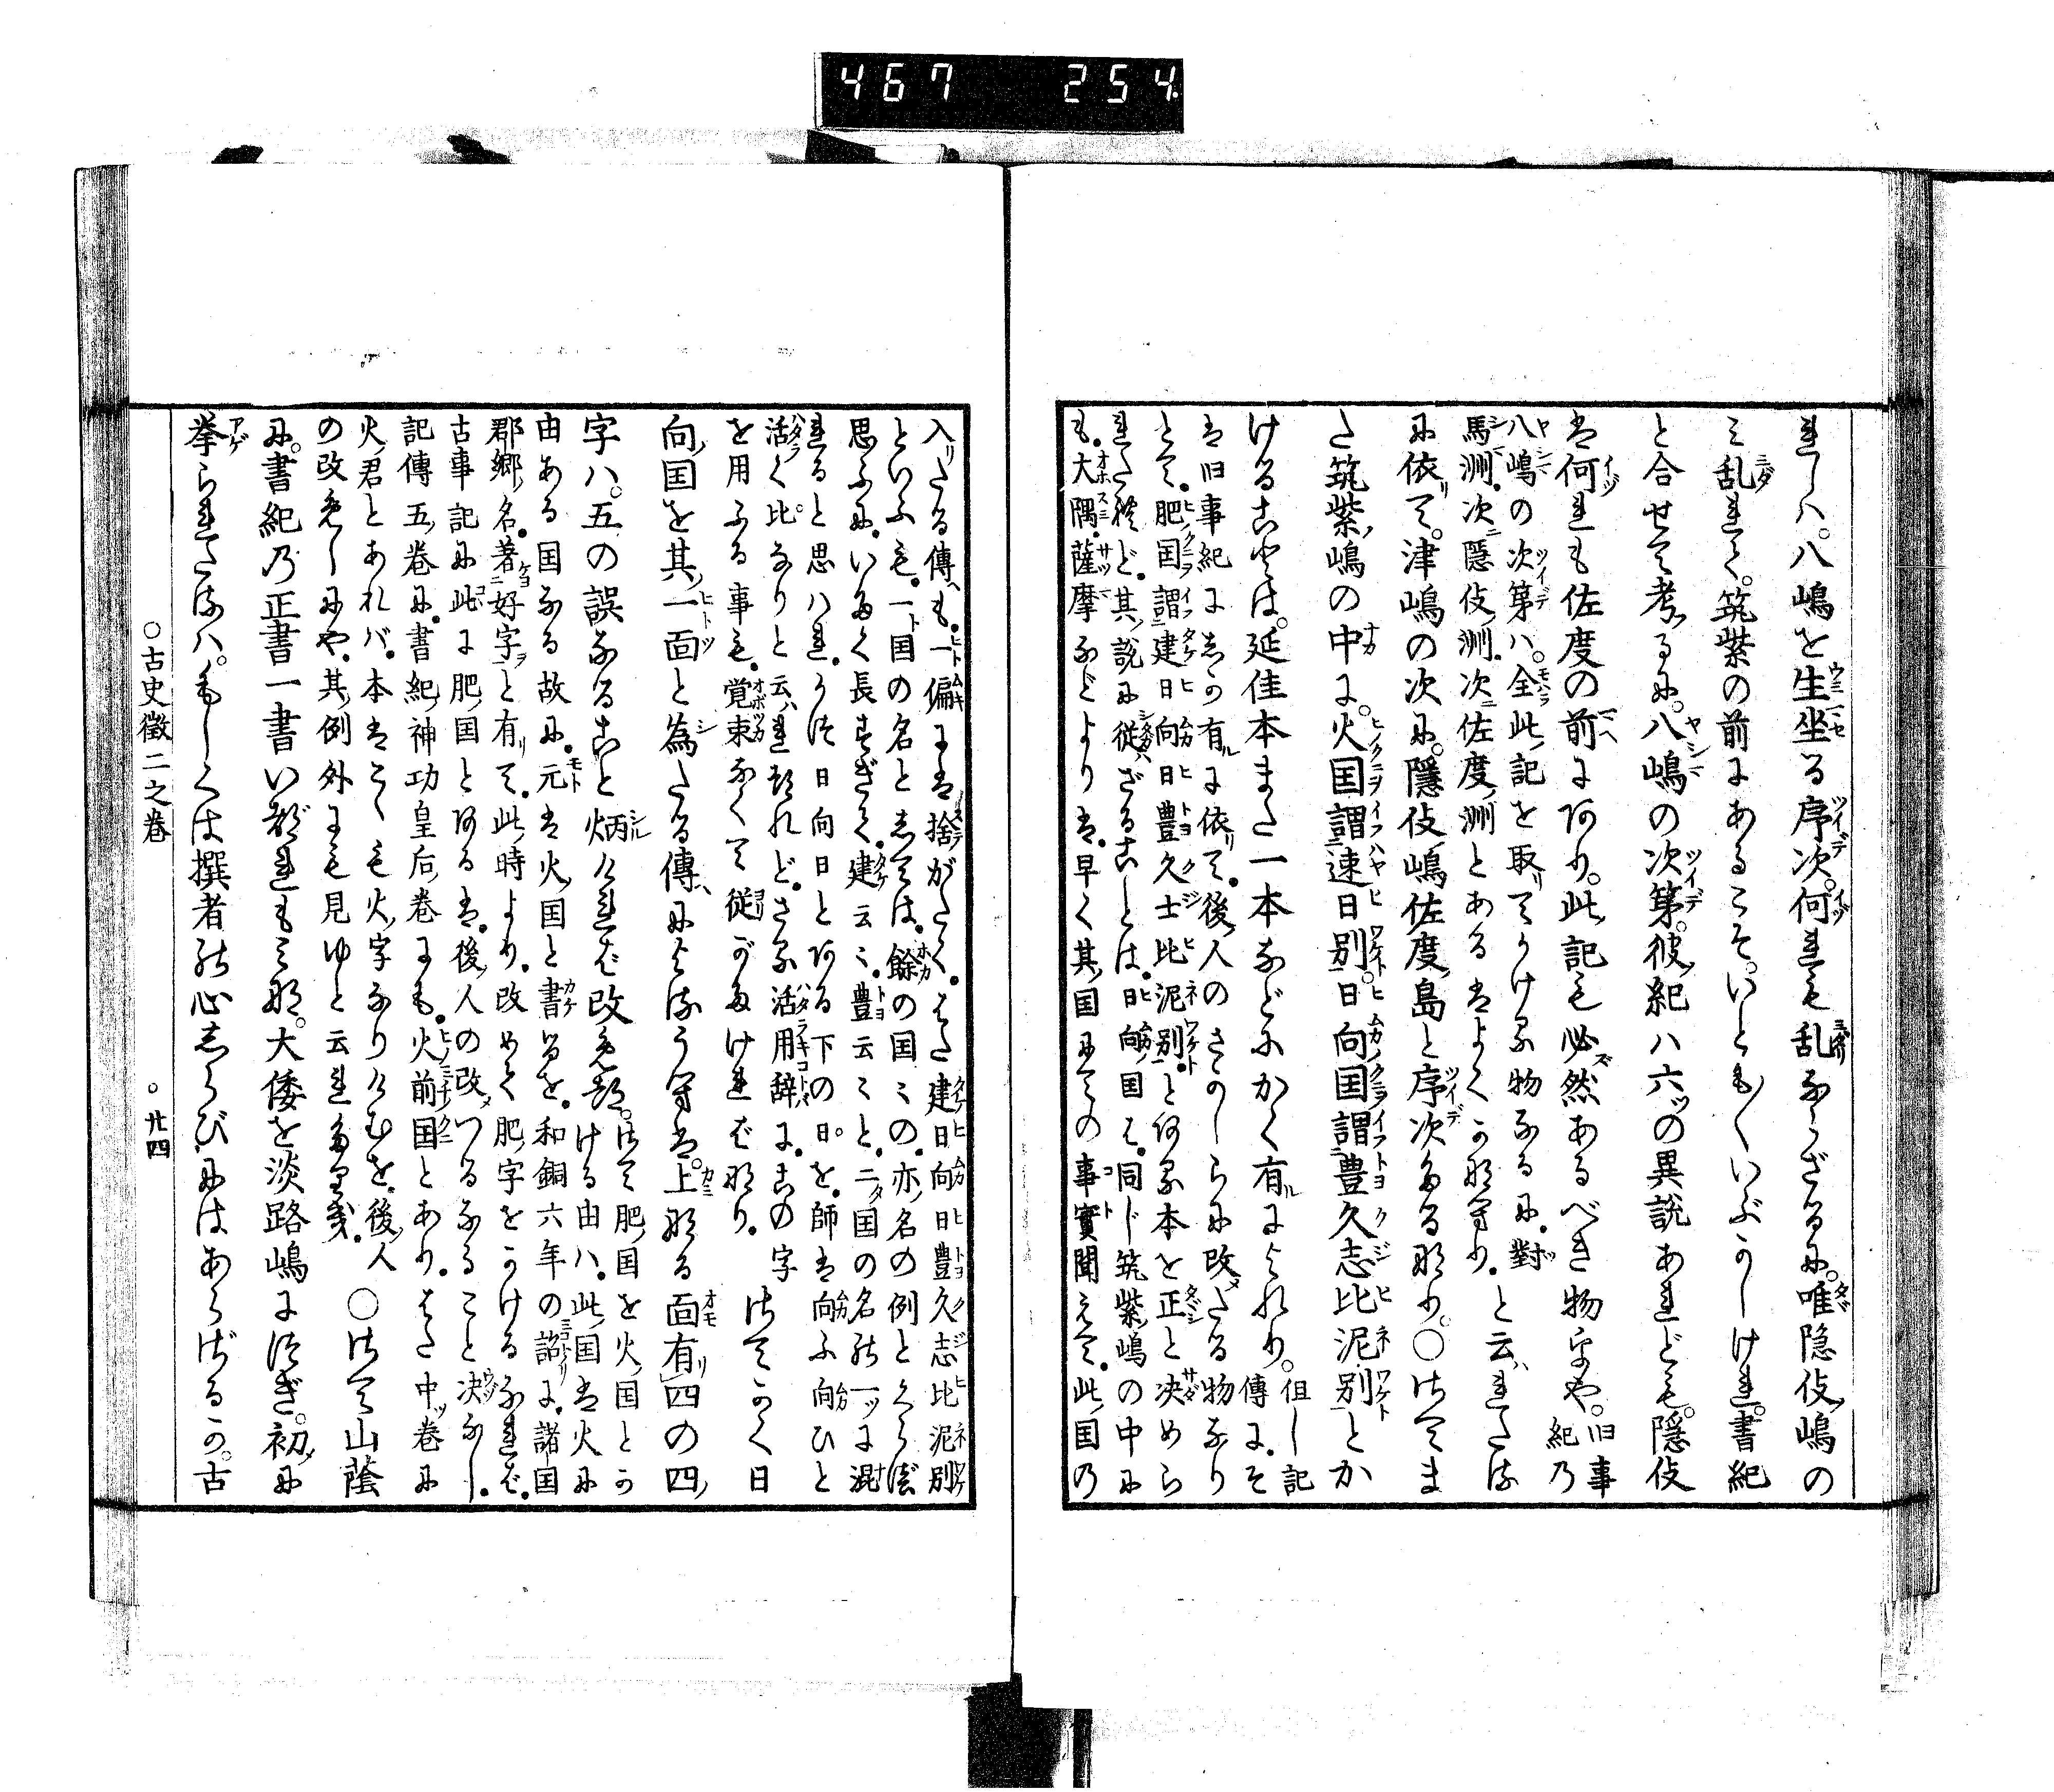 467 254
れしハ。八嶋を生坐る序次。何れも乱ならざるに。唯隠伎嶋の
ミ乱れて。筑紫の前にあるこそ。いとも〳〵いぶかしけれ。書紀
と合せて考るに。八嶋の次第。彼紀ハ六ツの異説あれども。隠伎
は何れも佐度の前にあり。此記も必然あるべき物ぞや。旧事紀乃
八嶋の次第ハ。全此記を取てかける物なるに。對
馬洲。次隠伎洲。次佐度洲とあるはよくかなへり。と云れたる
に依て。津嶋の次に。隠伎嶋佐度島と序次たるなり。○さてま
た筑紫嶋の中に。火国謂速日別。日向国謂豊久志比泥別とか
けることは。延佳本また一本などにかく有によれり。但し記傳に。そ
は旧事紀にしか有に依て。後人のさかしらに改たる物なり
とて。肥国謂建日向日豊久士比泥別。とある本を正と决めら
れたれど。其説に従ざることは。日向国も。同じ筑紫嶋の中に
も。大隅薩摩などよりは。早く其国にての事實聞えて。此国乃
入たる傳も。一偏には捨がたく。また建日向日豊久志比泥別
といふも。一国の名としては。餘の国々の。亦名の例とくらべ
思ふに。いたく長すぎて。建云々。豊云々と。二国の名の一ツに混
れると思はれ。かつ日向日とある下の日を。師は向ふ向ひと
活く比なりと云れつれど。さる活用辞に。この字
を用ふる事も。覚束なくて従がたければなり。さてかく日
向国を其一面と為たる傳によるうへは。上なる面有四の四
字ハ。五の誤なること炳ければ改めつ。さて肥国を火国とか
ける由ハ。此国は火に
由ある国なる故に。元は火国と書るを。和銅六年の詔に。諸国
郡郷名。著好字と有て。此時より。改めて肥字をかけるなれば。
古事記に此に肥国とあるは。後人の改つるなること决なし。
記傳五巻に。書紀神功皇后巻にも。火前国とあり。また中ツ巻に
火君とあれバ。本はこゝも火字なりけむを。後人
の改めしにや。其例外にも見ゆと云れたりき。○さて山蔭
に。書紀乃正書一書いづれもみな。大倭を淡路嶋につぎ。初に
挙られたるハ。もしくは撰者の心しらびにはあらざるか。古
○古史徴二之巻 ○廿四